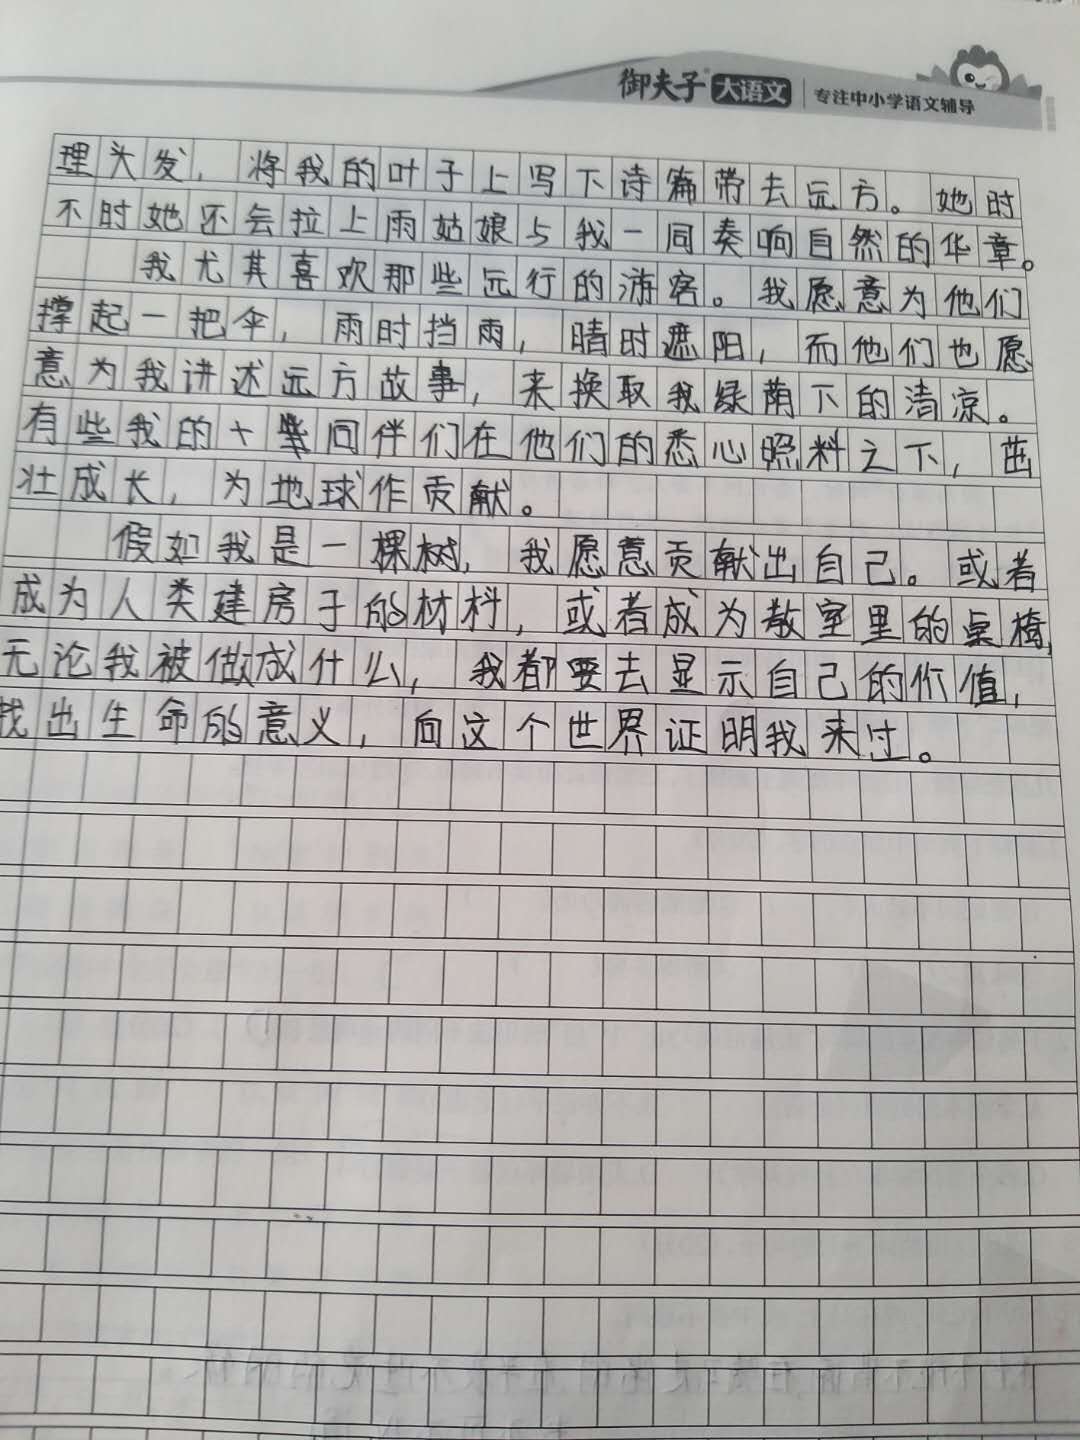 御夫子 大语文 专注中小学语文辅导
理头发，将我的叶子上写下诗篇带去远方。她时
不时她还会拉上雨姑娘与我一同奏响自然的华章。
我尤其喜欢那些远行的游客。我愿意为他们
撑起一把伞，雨时挡雨，晴时遮阳，而他们也愿
意为我讲述远方故事，来换取我绿荫下的清凉。
有些我的同伴们在他们的悉心照料之下，茁
壮成长，为地球作贡献。
假如我是一棵树，我愿意贡献出自己。或者
成为人类建房子的材料，或者成为教室里的桌椅，
无论我被做成什么，我都要去显示自己的价值，
找出生命的意义，向这个世界证明我来过。